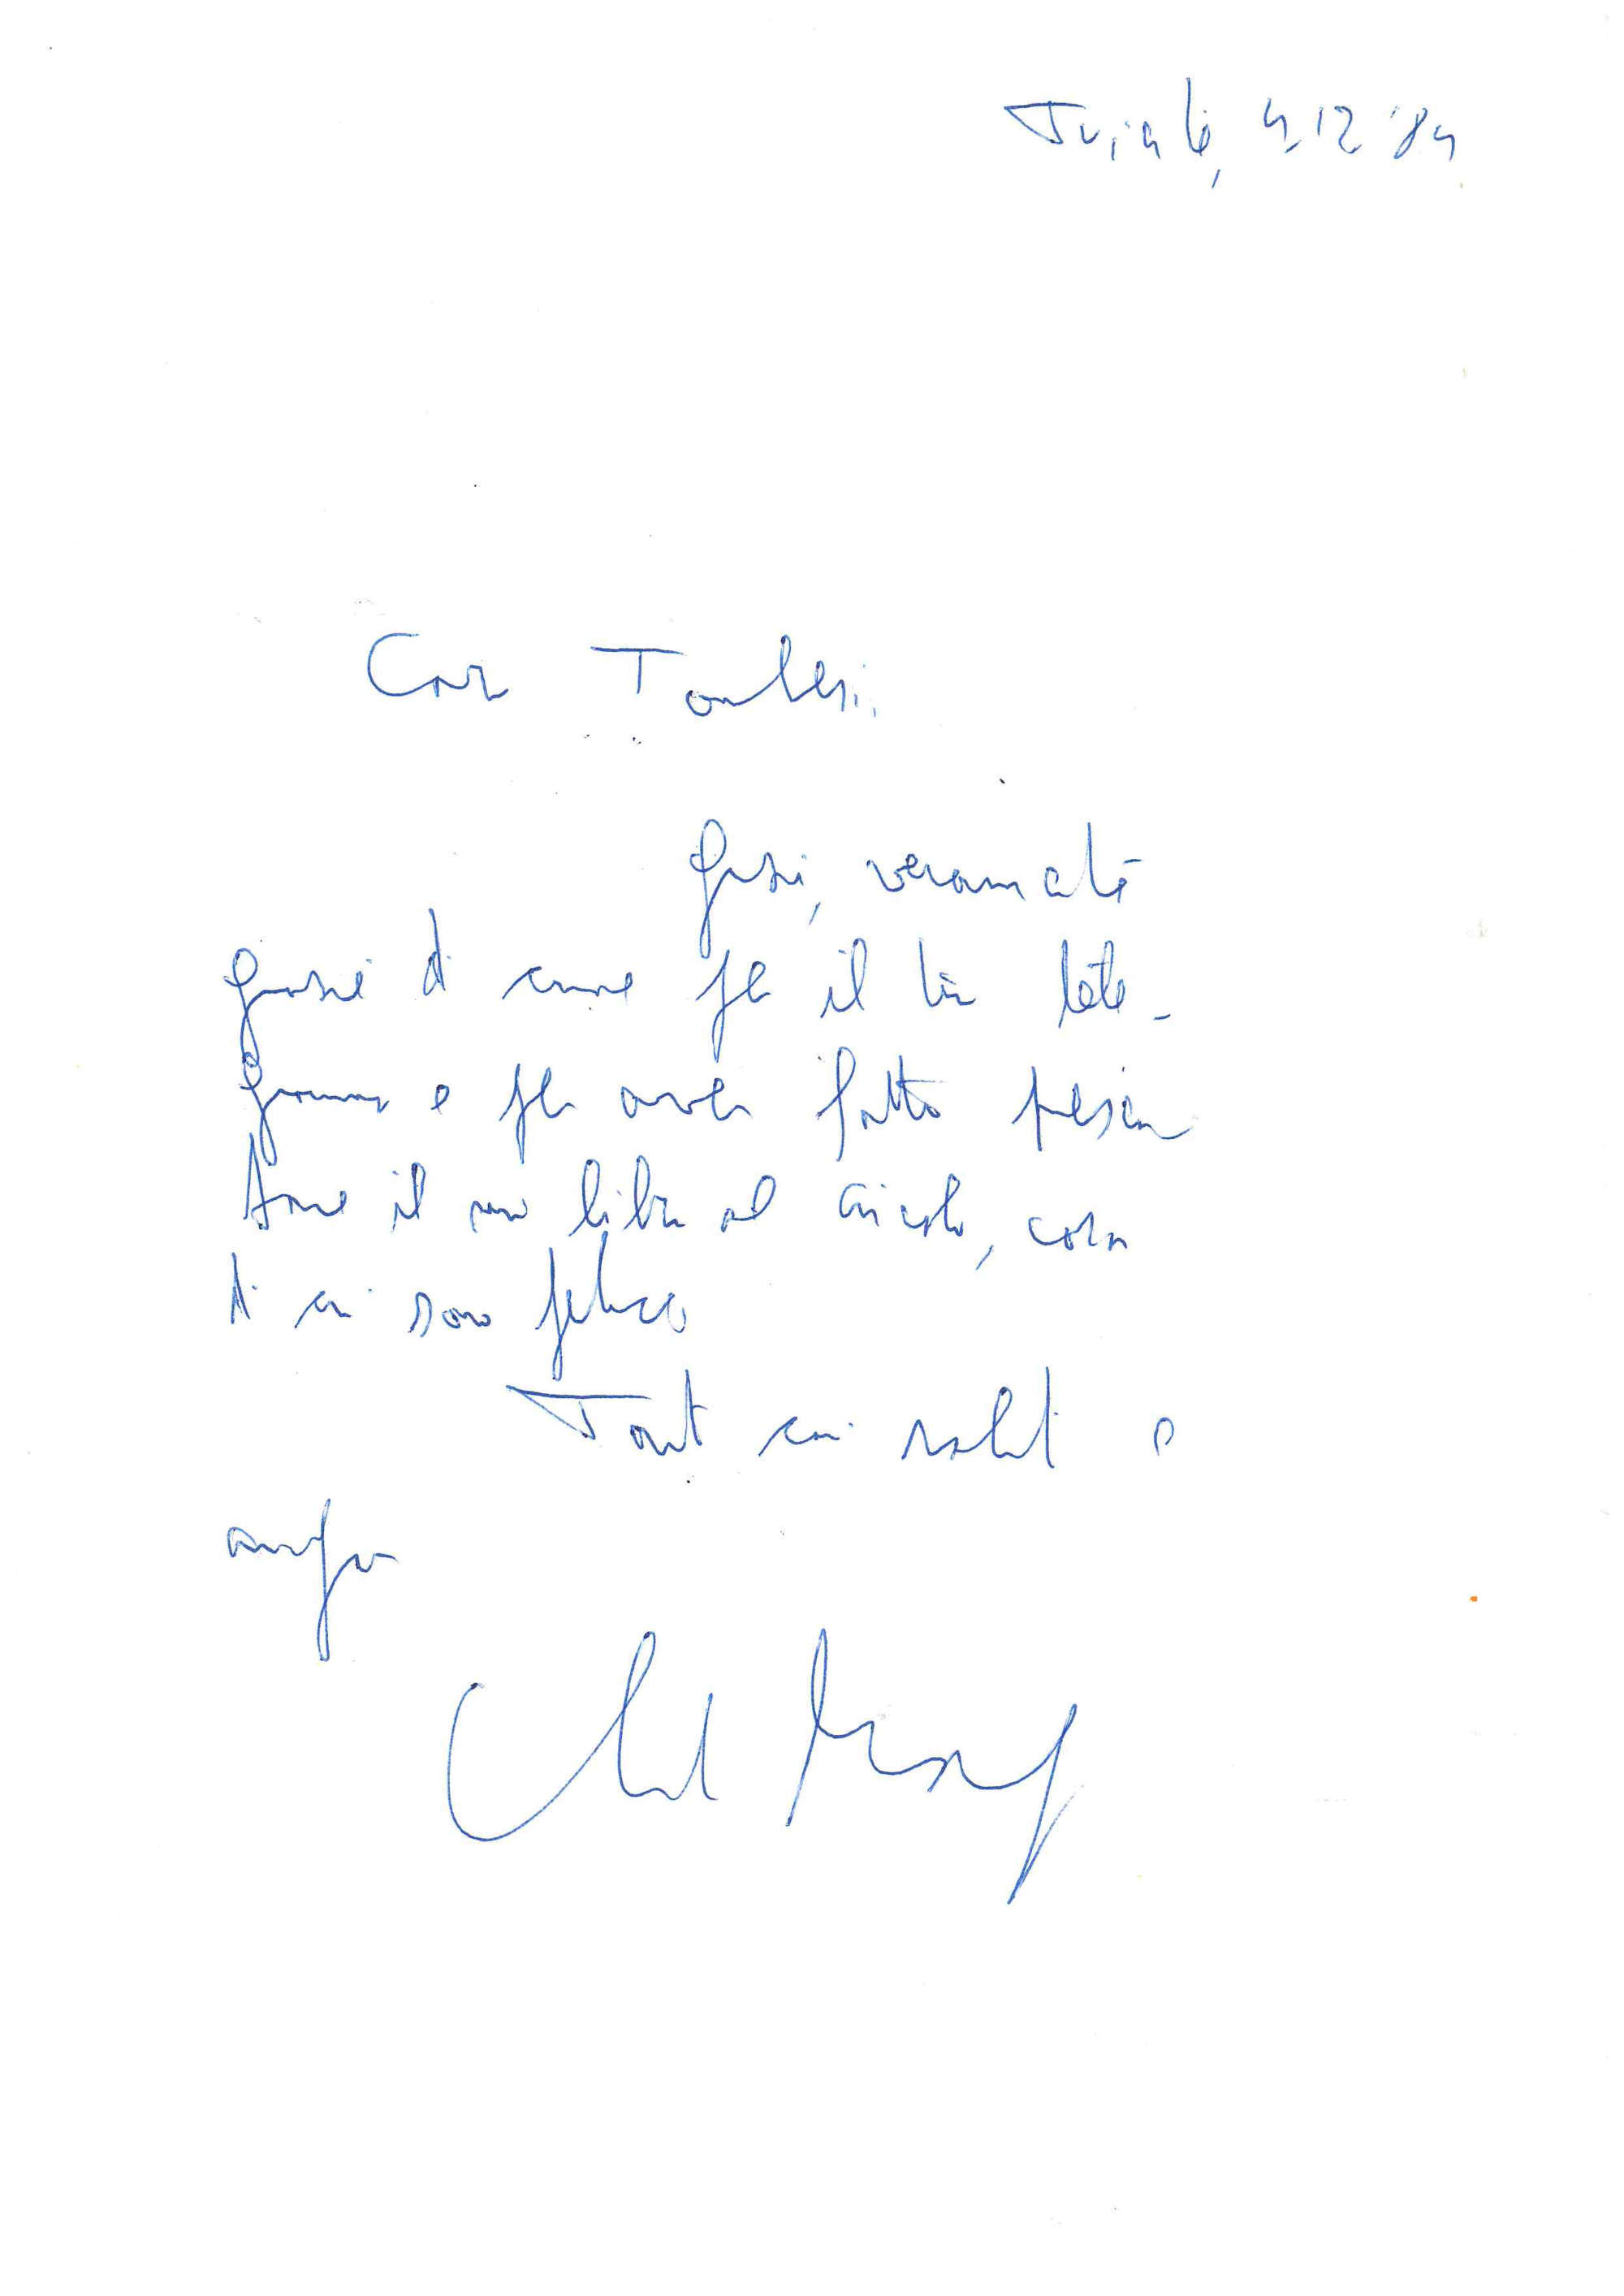 Trieste, 4.12.'84
Caro
Grazie, veramente
grazie di cuore per il tuo tele-
gramma e per aver fatto presen
tare il mio libro al Circolo, cosa
di cui sono felice
Tanti cari saluti e
auguri